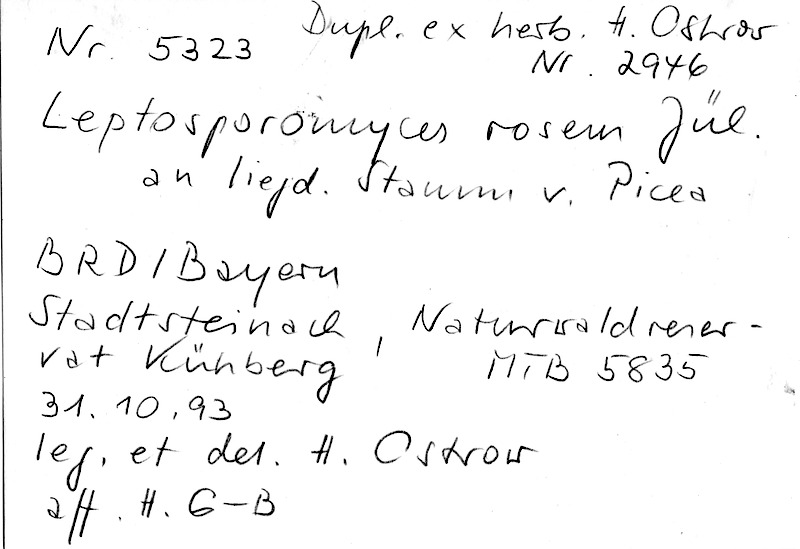 Nr. 5323 Dupl. ex herb. H. Ostrow
Nr. 2946
Leptosporomyces roseum Jül.
an liegd. Stamm v. Picea
BRD/Bayern
Stadtsteinach, Naturwaldreser-
vat Kühberg MTB 5835
31.10.93
leg. et det. H. Ostrow
aff. H. G-B